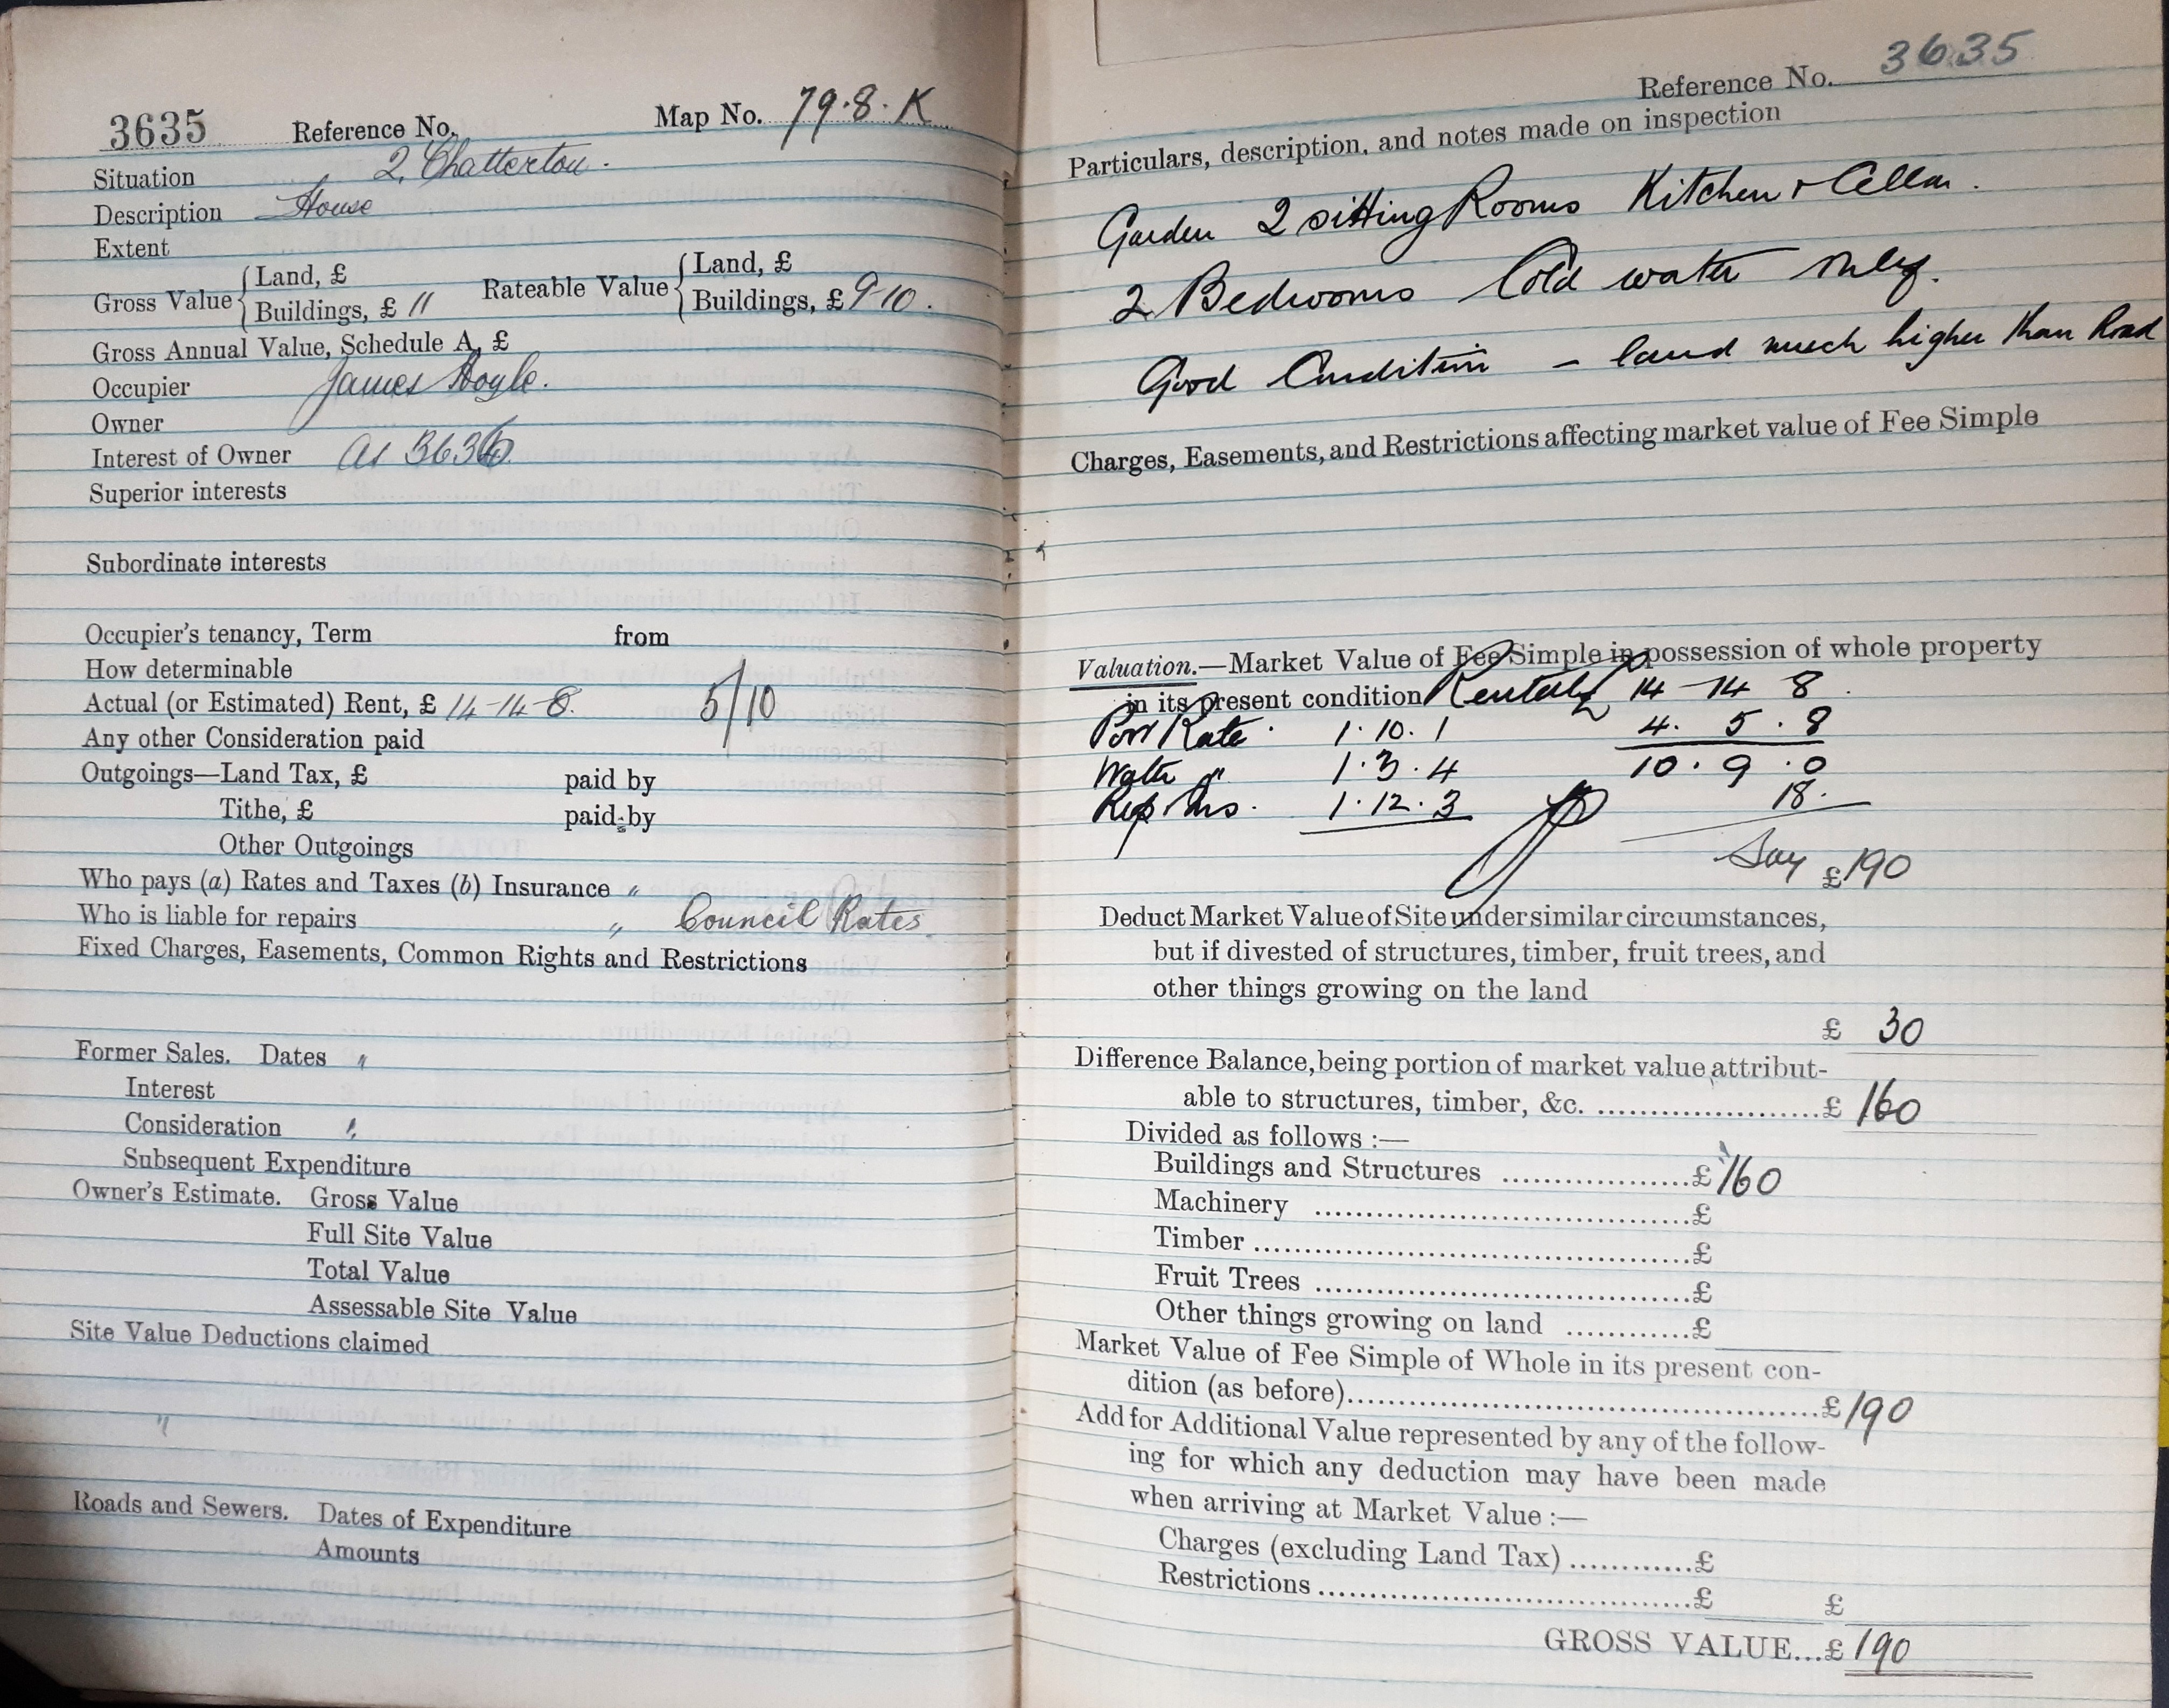 3635 Reference No. Map No. 79.8.K
Situation 2, Chatterton.
Description House
Extent
Gross Value { Land, £ Rateable Value { Land, £
Buildings, £ 11 Buildings, £ 9-10.
Gross Annual Value, Schedule A, £
Occupier James Hoyle.
Owner
Interest of Owner As 3636.
Superior interests
Subordinate interests
Occupier's tenancy, Term from
How determinable
Actual (or Estimated) Rent, £ 14-14-8. 5/10
Any other Consideration paid
Outgoings—Land Tax, £ paid by
Tithe, £ paid by
Other Outgoings
Who pays (a) Rates and Taxes (b) Insurance "
Who is liable for repairs " Council Rates.
Fixed Charges, Easements, Common Rights and Restrictions
Former Sales. Dates "
Interest
Consideration "
Subsequent Expenditure
Owner's Estimate. Gross Value
Full Site Value
Total Value
Assessable Site Value
Site Value Deductions claimed
"
Roads and Sewers. Dates of Expenditure
Amounts
Reference No. 3635
Particulars, description, and notes made on inspection
Garden 2 sitting Rooms Kitchen & Cellar.
2 Bedrooms Cold water only.
Good Condition - land much higher than Road
Charges, Easements, and Restrictions affecting market value of Fee Simple
Valuation.—Market Value of Fee Simple in possession of whole property
in its present condition Rental 14 - 14 8.
Poor Rate. 1.10.1 4. 5. 8
Water " 1.3.4 10. 9. 0
Rep Ins. 1.12.3 18.
Say £190
Deduct Market Value of Site under similar circumstances,
but if divested of structures, timber, fruit trees, and
other things growing on the land
£ 30
Difference Balance, being portion of market value attribut-
able to structures, timber, &c. ........................£ 160
Divided as follows :—
Buildings and Structures ....................£ 160
Machinery ........................................£
Timber ..............................................£
Fruit Trees ........................................£
Other things growing on land ............£
Market Value of Fee Simple of Whole in its present con-
dition (as before)..................................................£190
Add for Additional Value represented by any of the follow-
ing for which any deduction may have been made
when arriving at Market Value :—
Charges (excluding Land Tax) .............£
Restrictions ........................................£ £
GROSS VALUE...£190